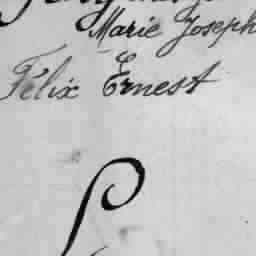 Marie Joseph
Félix Ernest